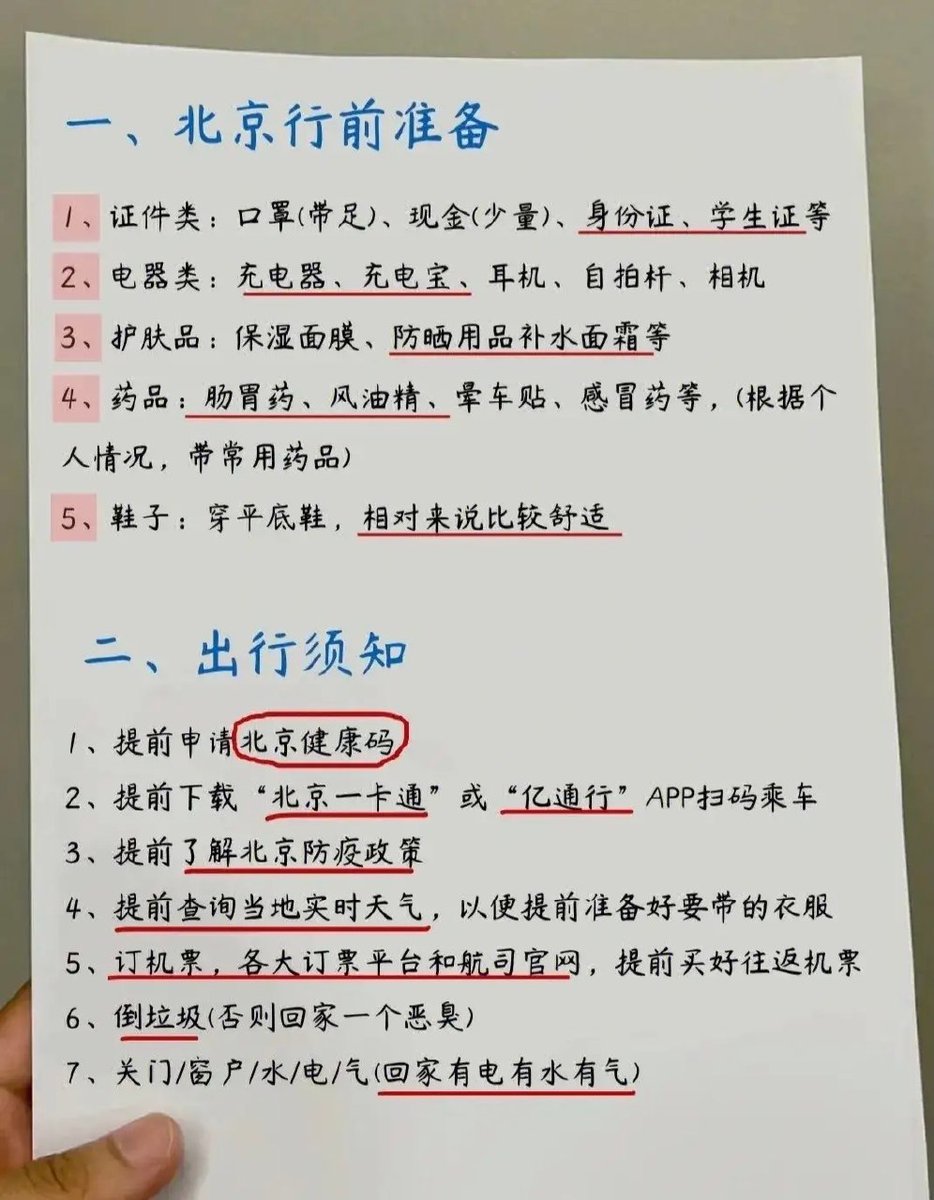 一、北京行前准备
1、证件类：口罩(带足)、现金(少量)、身份证、学生证等
2、电器类：充电器、充电宝、耳机、自拍杆、相机
3、护肤品：保湿面膜、防晒用品补水面霜等
4、药品：肠胃药、风油精、晕车贴、感冒药等，(根据个
人情况，带常用药品)
5、鞋子：穿平底鞋，相对来说比较舒适
二、出行须知
1、提前申请北京健康码
2、提前下载“北京一卡通”或“亿通行”APP扫码乘车
3、提前了解北京防疫政策
4、提前查询当地实时天气，以便提前准备好要带的衣服
5、订机票，各大订票平台和航司官网，提前买好往返机票
6、倒垃圾(否则回家一个恶臭)
7、关门/窗户/水/电/气(回家有电有水有气)